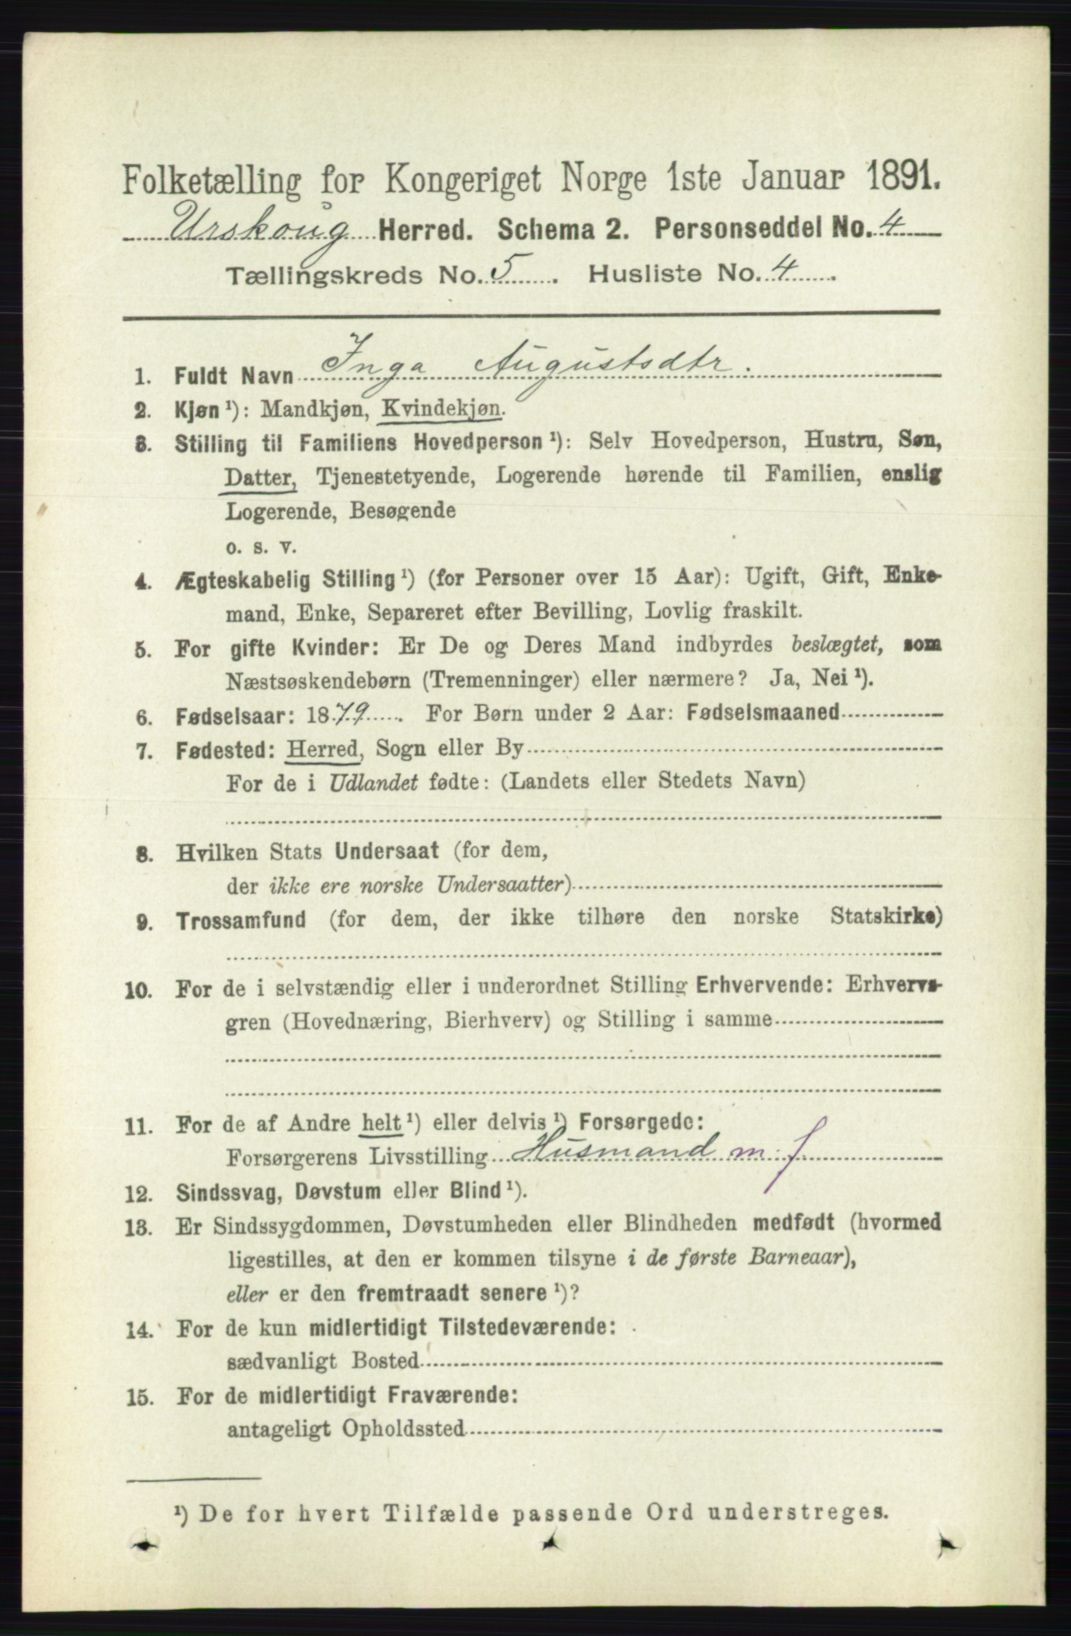 Folketælling for Kongeriget Norge 1ste Januar 1891.
Urskoug Herred. Schema 2. Personseddel No. 4
Tællingskreds No. 5. Husliste No. 4.
1. Fuldt Navn Inga Augustsdtr.
2. Kjøn ¹): Mandkjøn, Kvindekjøn.
3. Stilling til Familiens Hovedperson ¹): Selv Hovedperson, Hustru, Søn,
Datter, Tjenestetyende, Logerende hørende til Familien, enslig
Logerende, Besøgende
o. s. v.
4. Ægteskabelig Stilling ¹) (for Personer over 15 Aar): Ugift, Gift, Enke-
mand, Enke, Separeret efter Bevilling, Lovlig fraskilt.
5. For gifte Kvinder: Er De og Deres Mand indbyrdes beslægtet, som
Næstsøskendebørn (Tremenninger) eller nærmere? Ja, Nei ¹).
6. Fødselsaar: 1879. For Børn under 2 Aar: Fødselsmaaned
7. Fødested: Herred, Sogn eller By
For de i Udlandet fødte: (Landets eller Stedets Navn)
8. Hvilken Stats Undersaat (for dem,
der ikke ere norske Undersaatter)
9. Trossamfund (for dem, der ikke tilhøre den norske Statskirke)
10. For de i selvstændig eller i underordnet Stilling Erhvervende: Erhvervs-
gren (Hovednæring, Bierhverv) og Stilling i samme
11. For de af Andre helt ¹) eller delvis ¹) Forsørgede:
Forsørgerens Livsstilling Husmand m. J
12. Sindssvag, Døvstum eller Blind ¹).
13. Er Sindssygdommen, Døvstumheden eller Blindheden medfødt (hvormed
ligestilles, at den er kommen tilsyne i de første Barneaar),
eller er den fremtraadt senere ¹)?
14. For de kun midlertidigt Tilstedeværende:
sædvanligt Bosted
15. For de midlertidigt Fraværende:
antageligt Opholdssted
¹) De for hvert Tilfælde passende Ord understreges.